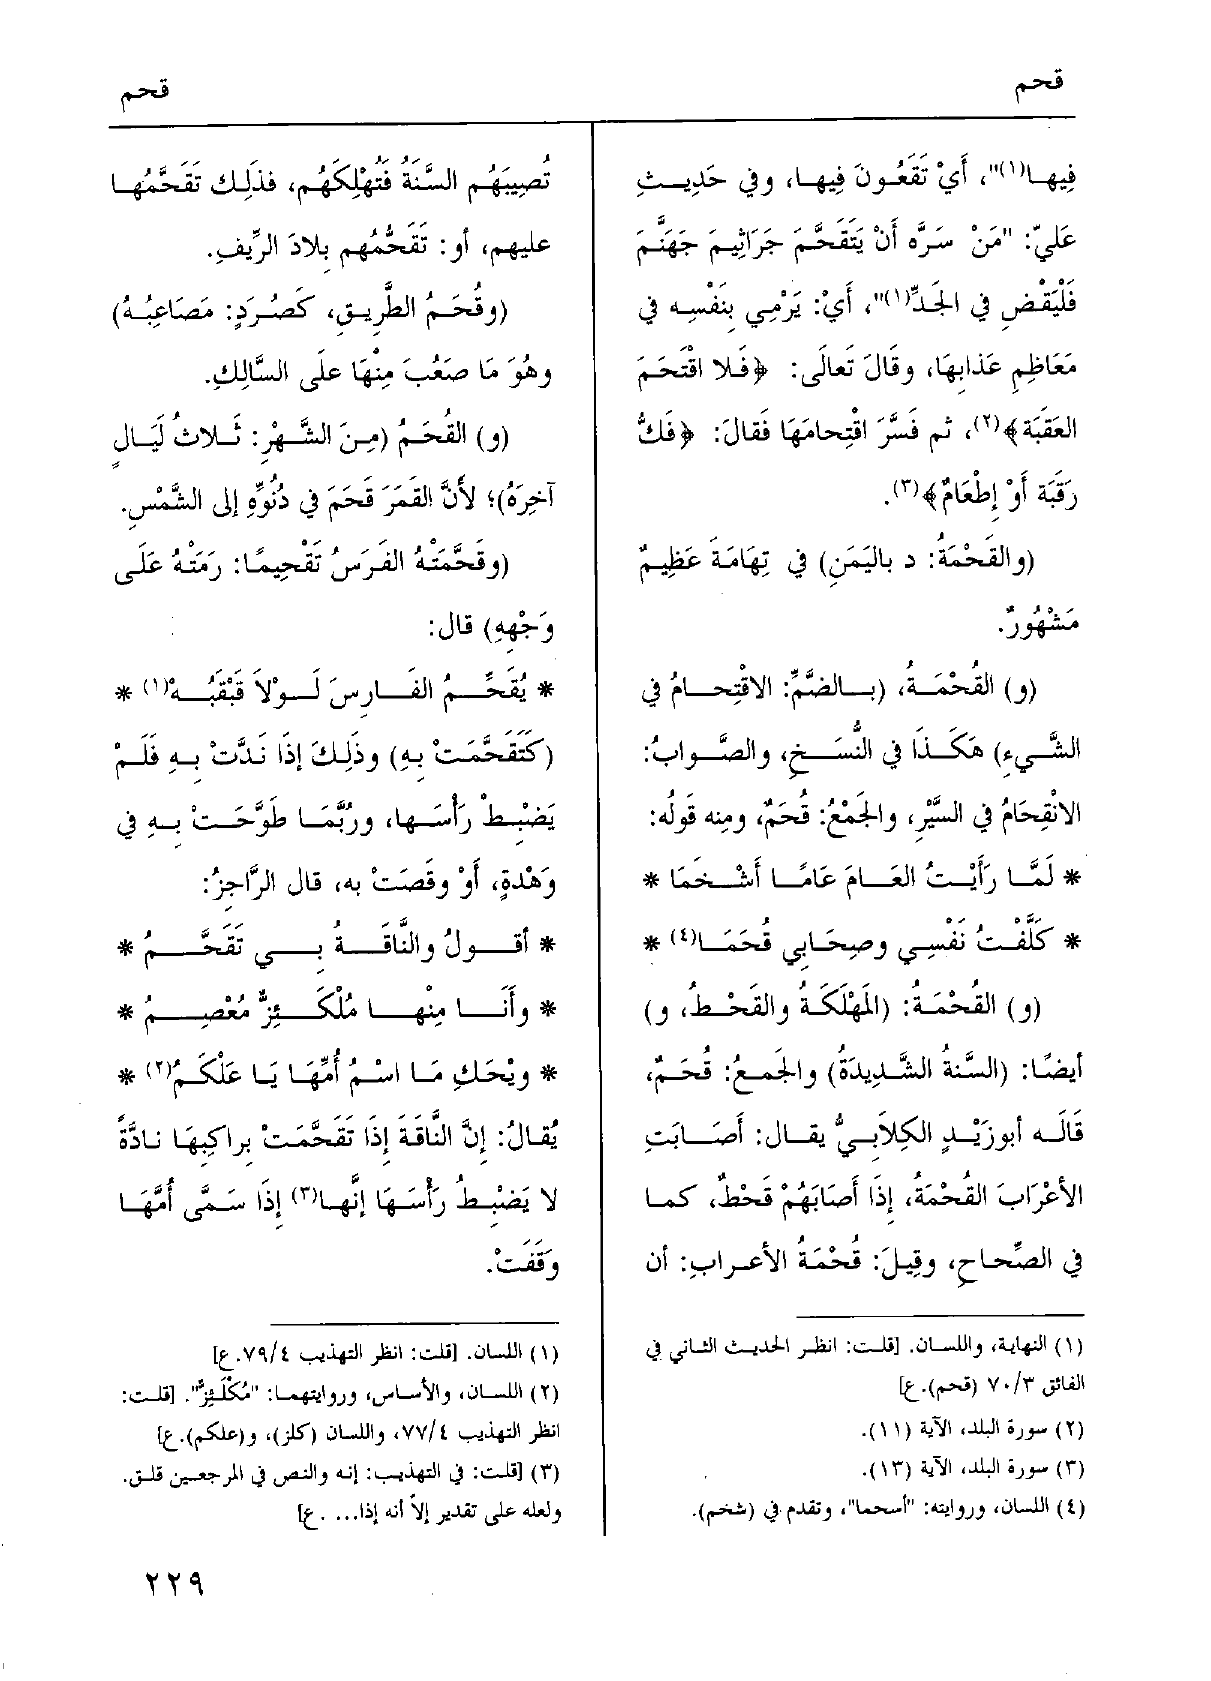 قحم
قحم
فِيهَا(١)"، أَيْ تَقَعُونَ فِيها، وفي حَدِيثِ
عَلَيّ: "مَنْ سَرَّه أَنْ يَتَقَحَّمَ جَرَاثِيمَ جَهَنَّمَ
فَلْيَقْضِ في الجَدِّ(١)"، أَيْ: يَرْمِي بِنَفْسِه في
مَعَاظِمِ عَذابِها، وقَالَ تَعالَى: ﴿فَلا اقْتَحَمَ
العَقَبَة﴾(٢)، ثم فَسَّرَ اقْتِحامَهَا فَقالَ: ﴿فَكُّ
رَقَبَة أَوْ إِطْعَامٌ﴾(٣).
(والقَحْمَةُ: د بالَيمَنِ) في تِهَامَةَ عَظِيمٌ
مَشْهُورٌ.
(و) القُحْمَـةُ، (بـالضَّمِّ: الاقْتِحـامُ في
الشَّيءِ) هَكَـذَا في النُّسَـخِ، والصَّـوابُ:
الانْقِحَامُ في السَّيْرِ، والجَمْعُ: قُحَمٌ، ومِنه قَولُه:
* لَمَّـا رَأَيْـتُ العَـامَ عَامًـا أَشْـخَمَا *
* كَلَّفْـتُ نَفْسِـي وصِحَابِي قُحَمَـا(٤) *
(و) القُحْمَةُ: (المَهْلَكَـةُ والقَحْـطُ، و)
أيضًـا: (السَّنَةُ الشَّـدِيدَةُ) والجَمعُ: قُحَمٌ،
قَالَـه أبوزَيْـدٍ الكِلابِيُّ يقـال: أَصَـابَتِ
الأعْرَابَ القُحْمَةُ، إِذَا أَصَابَهُمْ قَحْطٌ، كمـا
في الصِّحاحِ، وقِيلَ: قُحْمَةُ الأعـرابِ: أن
(١) النهاية، واللسان. [قلت: انظر الحديث الثاني في
الفائق ٧٠/٣ (قحم).ع]
(٢) سورة البلد، الآية (١١).
(٣) سورة البلد، الآية (١٣).
(٤) اللسان، وروايته: "أسحما"، وتقدم في (شخم).
تُصِيبَهُم السَّنَةُ فَتُهْلِكَهُم، فذَلِك تَقَحُّمُهـا
عليهم، أو: تَقَحُّمُهم بِلادَ الرِّيفِ.
(وقُحَـمُ الطَّرِيـقِ، كَصُـرَدٍ: مَصَاعِبُـهُ)
وهُوَ مَا صَعُبَ مِنْهَا علَى السَّالِكِ.
(و) القُحَـمُ (مِـنَ الشَّـهْرِ: ثَـلاثُ لَيَـالٍ
آخِرَهُ)؛ لأنَّ القَمَرَ قَحَمَ في دُنُوِّهِ إلى الشَّمْسِ.
(وقَحَّمَتْـهُ الفَـرَسُ تَقْحِيمًـا: رَمَتْـهُ عَلَـى
وَجْهِهِ) قال:
* يُقَحِّـمُ الفَـارِسَ لَـوْلاَ قَبْقَبُـهْ(١) *
(كَتَقَحَّمَـتْ بِهِ) وذَلِكَ إذَا نَدَّتْ بِـهِ فَلَـمْ
يَضْبِـطْ رَأْسَـها، ورُبَّمَـا طَوَّحَـتْ بِـهِ في
وَهْدةٍ، أَوْ وقَصَتْ به، قال الرَّاجِزُ:
* أقُـولُ والنَّاقَـةُ بِـي تَقَحَّـمُ *
* وأنَـا مِنْهـا مُلْكَـئِزٌّ مُعْصِـمُ *
* ويْحَكِ مَـا اسْـمُ أُمِّهَا يَـا عَلْكَـمُ(٢) *
يُقَالُ: إنَّ النَّاقَةَ إذَا تَقَحَّمَتْ بِراكِبِهَا نـادَّةً
لا يَضْبِـطُ رَأْسَـهَا إنَّهـا(٣) إذَا سَـمَّى أُمَّهَـا
وَقَفَتْ.
(١) اللسان. [قلت: انظر التهذيب ٧٩/٤.ع]
(٢) اللسان، والأساس، وروايتهما: "مُكْلَئِزٌّ". [قلت:
انظر التهذيب ٧٧/٤، واللسان (كلز)، و(علكم).ع]
(٣) [قلت: في التهذيب: إنه والنص في المرجعين قلق.
ولعله على تقدير إلاّ أنه إذا... .ع]
٢٢٩